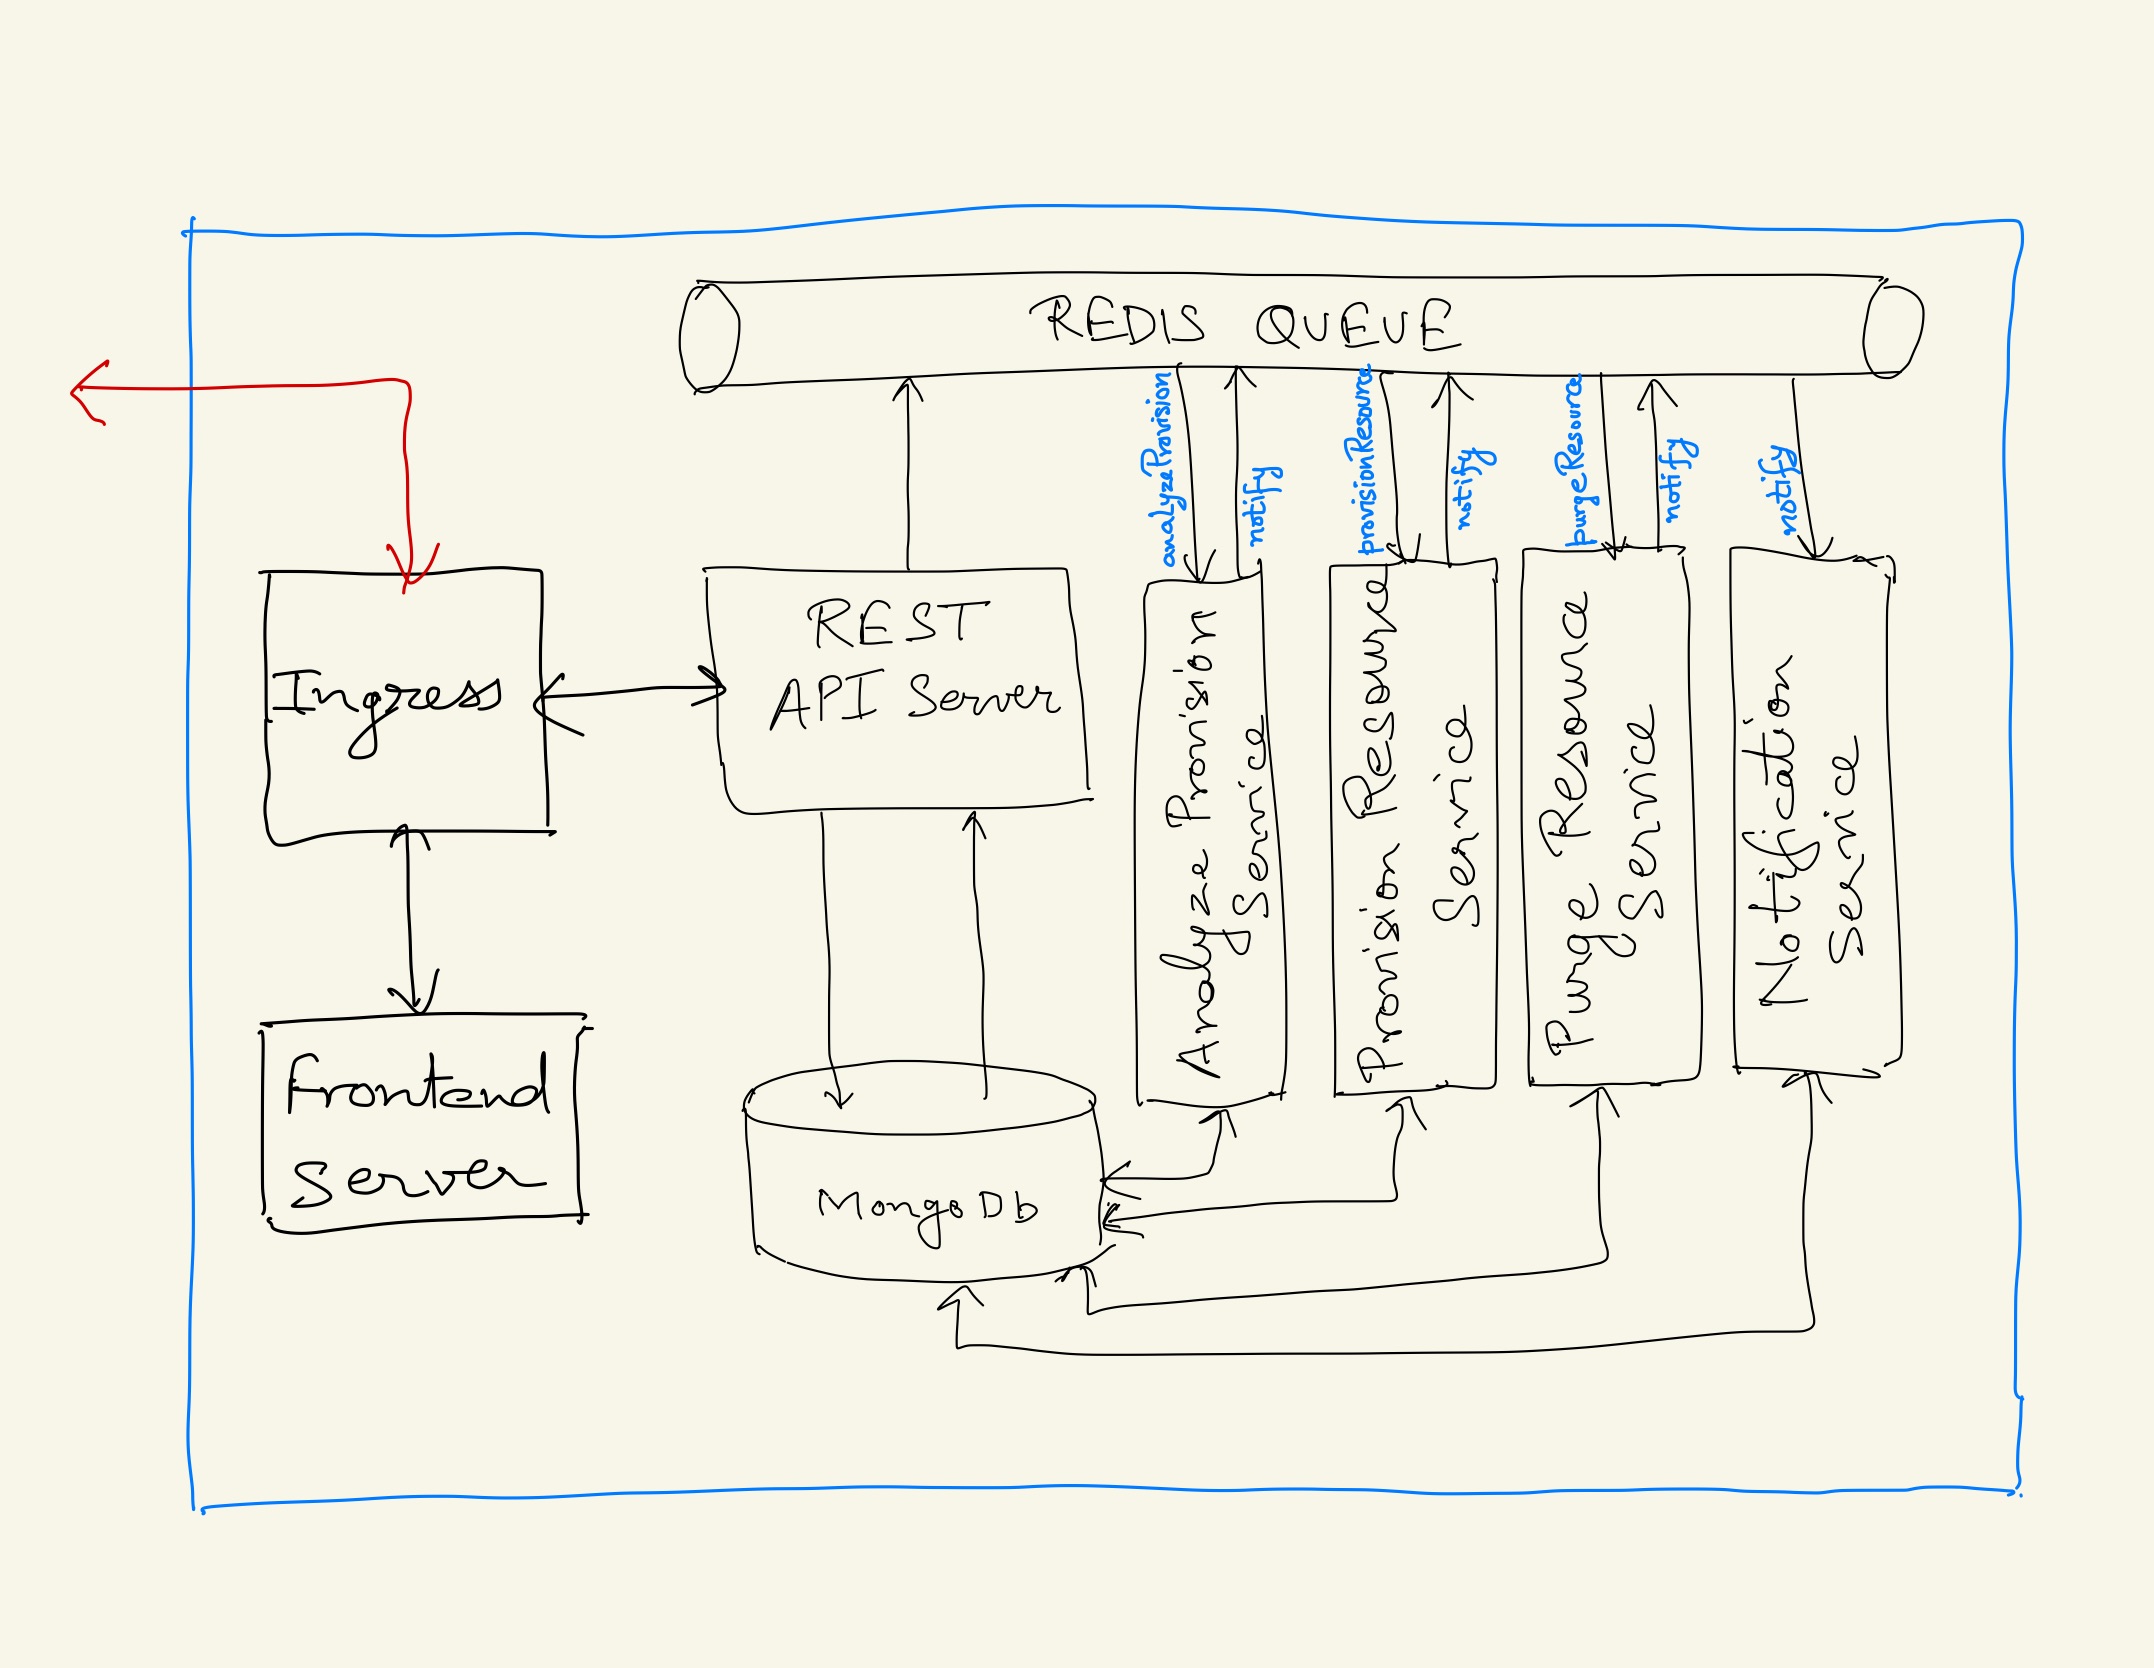 REDIS QUEUE
analyzeProvision
notify
provisionResource
notify
purgeResource
notify
notify
Ingress
REST
API Server
Analyze Provision
Service
Provision Resource
Service
Purge Resource
Service
Notification
Service
Frontend
Server
MongoDb